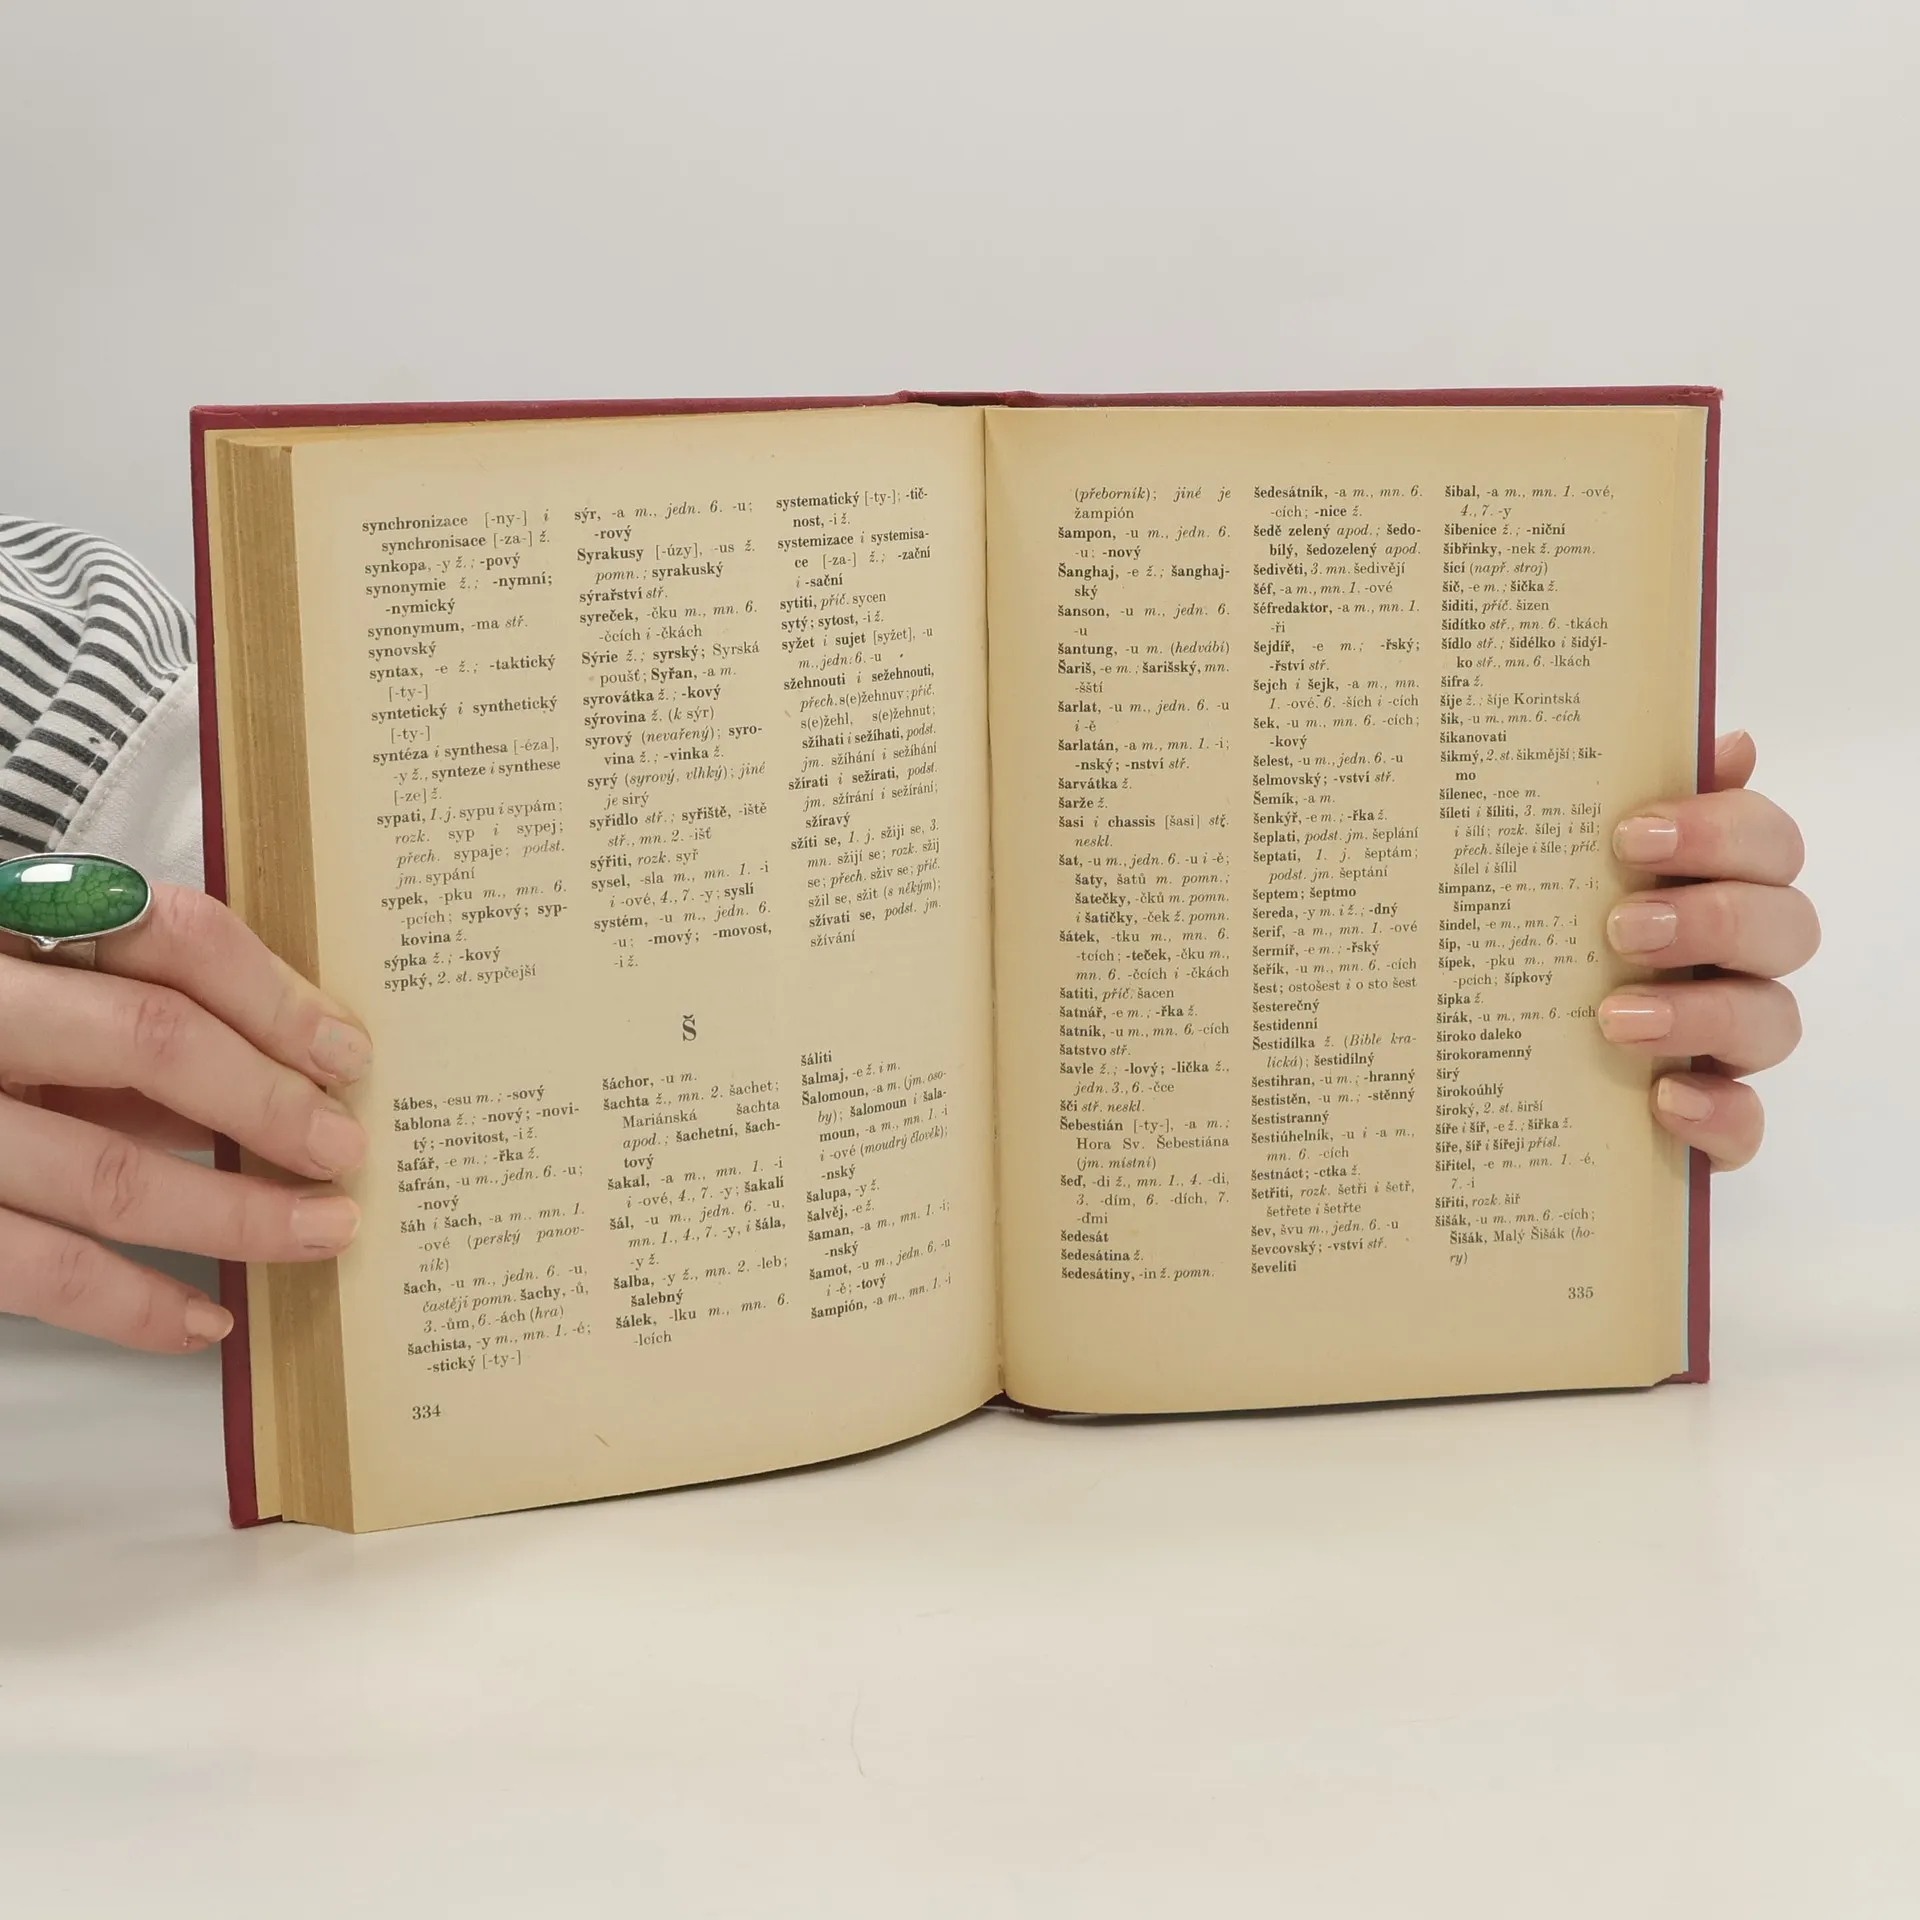 synchronizace [-ny-] i
synchronisace [-za-] ž.
synkopa, -y ž.; -pový
synonymie ž.; -nymní;
-nymický
synonymum, -ma stř.
synovský
syntax, -e ž.; -taktický
[-ty-]
syntetický i synthetický
[-ty-]
syntéza i synthesa [-éza],
-y ž., synteze i synthese
[-ze] ž.
sypati, 1. j. sypu i sypám;
rozk. syp i sypej;
přech. sypaje; podst.
jm. sypání
sypek, -pku m., mn. 6.
-pcích; sypkový; syp-
kovina ž.
sýpka ž.; -kový
sypký, 2. st. sypčejší
sýr, -a m., jedn. 6. -u;
-rový
Syrakusy [-úzy], -us ž.
pomn.; syrakuský
sýrařství stř.
syreček, -čku m., mn. 6.
-čcích i -čkách
Sýrie ž.; syrský; Syrská
poušť; Syřan, -a m.
syrovátka ž.; -kový
sýrovina ž. (k sýr)
syrový (nevařený); syro-
vina ž.; -vinka ž.
syrý (syrový, vlhký); jiné
je sirý
syřidlo stř.; syřiště, -iště
stř., mn. 2. -išť
sýřiti, rozk. syř
sysel, -sla m., mn. 1. -i
i -ové, 4., 7. -y; syslí
systém, -u m., jedn. 6.
-u; -mový; -movost,
-i ž.
systematický [-ty-]; -tič-
nost, -i ž.
systemizace i systemisa-
ce [-za-] ž.; -zační
i -sační
sytiti, příč. sycen
sytý; sytost, -i ž.
syžet i sujet [syžet], -u
m., jedn. 6. -u
sžehnouti i sežehnouti,
přech. s(e)žehnuv; příč.
s(e)žehl, s(e)žehnut;
sžíhati i sežíhati, podst.
jm. sžíhání i sežíhání
sžírati i sežírati, podst.
jm. sžírání i sežírání;
sžíravý
sžíti se, 1. j. sžiji se, 3.
mn. sžijí se; rozk. sžij
se; přech. sživ se; příč.
sžil se, sžit (s někým);
sžívati se, podst. jm.
sžívání
Š
šábes, -esu m.; -sový
šablona ž.; -nový; -novi-
tý; -novitost, -i ž.
šafář, -e m.; -řka ž.
šafrán, -u m., jedn. 6. -u;
-nový
šáh i šach, -a m., mn. 1.
-ové (perský panov-
ník)
šach, -u m., jedn. 6. -u,
častěji pomn. šachy, -ů,
3. -ům, 6. -ách (hra)
šachista, -y m., mn. 1. -é;
-stický [-ty-]
šáchor, -u m.
šachta ž., mn. 2. šachet;
Mariánská šachta
apod.; šachetní, šach-
tový
šakal, -a m., mn. 1. -i
i -ové, 4., 7. -y; šakalí
šál, -u m., jedn. 6. -u,
mn. 1., 4., 7. -y, i šála,
-y ž.
šalba, -y ž., mn. 2. -leb;
šalebný
šálek, -lku m., mn. 6.
-lcích
šáliti
šalmaj, -e ž. i m.
Šalomoun, -a m. (jm. oso-
by); šalomoun i šala-
moun, -a m., mn. 1. -i
i -ové (moudrý člověk);
-nský
šalupa, -y ž.
šalvěj, -e ž.
šaman, -a m., mn. 1. -i;
-nský
šamot, -u m., jedn. 6. -u
i -ě; -tový
šampión, -a m., mn. 1. -i
334
(přeborník); jiné je
žampión
šampon, -u m., jedn. 6.
-u; -nový
Šanghaj, -e ž.; šanghaj-
ský
šanson, -u m., jedn. 6.
-u
šantung, -u m. (hedvábí)
Šariš, -e m.; šarišský, mn.
-šští
šarlat, -u m., jedn. 6. -u
i -ě
šarlatán, -a m., mn. 1. -i;
-nský; -nství stř.
šarvátka ž.
šarže ž.
šasi i chassis [šasi] stř.
neskl.
šat, -u m., jedn. 6. -u i -ě;
šaty, šatů m. pomn.;
šatečky, -čků m. pomn.
i šatičky, -ček ž. pomn.
šátek, -tku m., mn. 6.
-tcích; -teček, -čku m.,
mn. 6. -čcích i -čkách
šatiti, příč. šacen
šatnář, -e m.; -řka ž.
šatník, -u m., mn. 6. -cích
šatstvo stř.
šavle ž.; -lový; -lička ž.,
jedn. 3., 6. -čce
šči stř. neskl.
Šebestián [-ty-], -a m.;
Hora Sv. Šebestiána
(jm. místní)
šeď, -di ž., mn. 1., 4. -di,
3. -dím, 6. -dích, 7.
-ďmi
šedesát
šedesátina ž.
šedesátiny, -in ž. pomn.
šedesátník, -a m., mn. 6.
-cích; -nice ž.
šedě zelený apod.; šedo-
bílý, šedozelený apod.
šedivěti, 3. mn. šedivějí
šéf, -a m., mn. 1. -ové
šéfredaktor, -a m., mn. 1.
-ři
šejdíř, -e m.; -řský;
-řství stř.
šejch i šejk, -a m., mn.
1. -ové, 6. -ších i -cích
šek, -u m., mn. 6. -cích;
-kový
šelest, -u m., jedn. 6. -u
šelmovský; -vství stř.
Šemík, -a m.
šenkýř, -e m.; -řka ž.
šeplati, podst. jm. šeplání
šeptati, 1. j. šeptám;
podst. jm. šeptání
šeptem; šeptmo
šereda, -y m. i ž.; -dný
šerif, -a m., mn. 1. -ové
šermíř, -e m.; -řský
šeřík, -u m., mn. 6. -cích
šest; ostošest i o sto šest
šesterečný
šestidenní
Šestidílka ž. (Bible kra-
lická); šestidílný
šestihran, -u m.; -hranný
šestistěn, -u m.; -stěnný
šestistranný
šestiúhelník, -u i -a m.,
mn. 6. -cích
šestnáct; -ctka ž.
šetřiti, rozk. šetři i šetř,
šetřete i šetřte
šev, švu m., jedn. 6. -u
ševcovský; -vství stř.
ševeliti
šibal, -a m., mn. 1. -ové,
4., 7. -y
šibenice ž.; -niční
šibřinky, -nek ž. pomn.
šicí (např. stroj)
šič, -e m.; šička ž.
šiditi, příč. šizen
šidítko stř., mn. 6. -tkách
šídlo stř.; šidélko i šidýl-
ko stř., mn. 6. -lkách
šifra ž.
šíje ž.; šíje Korintská
šik, -u m., mn. 6. -cích
šikanovati
šikmý, 2. st. šikmější; šik-
mo
šílenec, -nce m.
šíleti i šíliti, 3. mn. šílejí
i šílí; rozk. šílej i šil;
přech. šíleje i šíle; příč.
šílel i šílil
šimpanz, -e m., mn. 7. -i;
šimpanzí
šindel, -e m., mn. 7. -i
šíp, -u m., jedn. 6. -u
šípek, -pku m., mn. 6.
-pcích; šípkový
šipka ž.
širák, -u m., mn. 6. -cích
široko daleko
širokoramenný
širý
širokoúhlý
široký, 2. st. širší
šíře i šíř, -e ž.; šířka ž.
šíře, šíř i šířeji přísl.
šiřitel, -e m., mn. 1. -é,
7. -i
šířiti, rozk. šiř
šišák, -u m., mn. 6. -cích;
Šišák, Malý Šišák (ho-
ry)
335